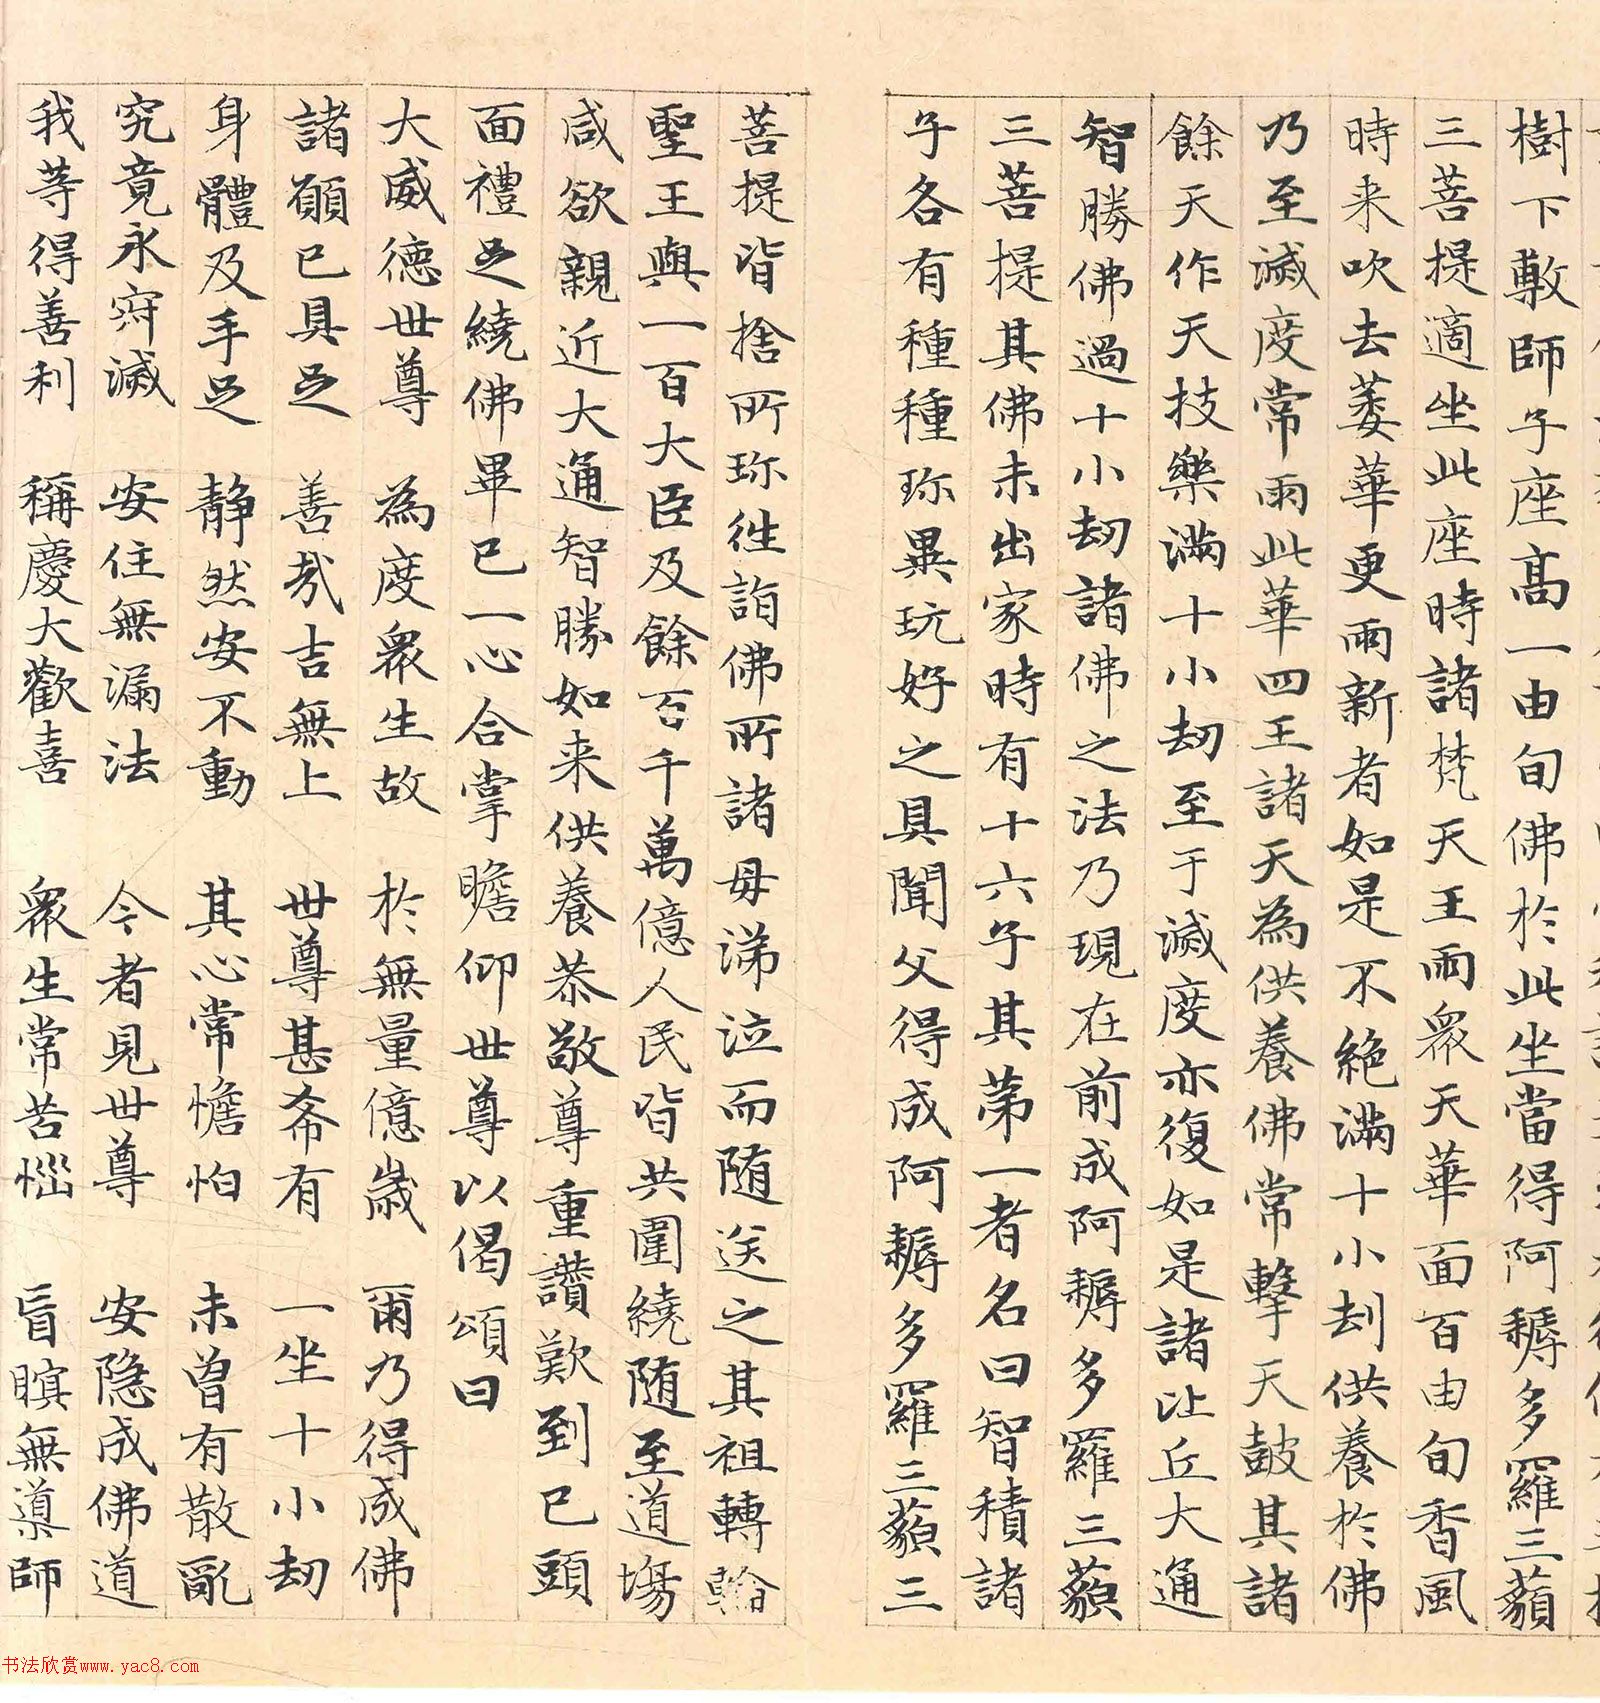 樹下敷師子座高一由旬佛於此坐當得阿耨多羅三藐
三菩提適坐此座時諸梵天王雨眾天華面百由旬香風
時来吹去萎華更雨新者如是不絕滿十小劫供養於佛
乃至滅度常雨此華四王諸天為供養佛常擊天鼓其諸
餘天作天技樂滿十小劫至于滅度亦復如是諸比丘大通
智勝佛過十小劫諸佛之法乃現在前成阿耨多羅三藐
三菩提其佛未出家時有十六子其第一者名曰智積諸
子各有種種珎異玩好之具聞父得成阿耨多羅三藐三
菩提皆捨所珎往詣佛所諸母涕泣而随送之其祖轉輪
聖王與一百大臣及餘百千萬億人民皆共圍繞随至道場
咸欲親近大通智勝如来供養恭敬尊重讚歎到已頭
面禮足繞佛畢已一心合掌瞻仰世尊以偈頌曰
大威德世尊　為度眾生故　於無量億歲　爾乃得成佛
諸願已具足　善哉吉無上　世尊甚希有　一坐十小劫
身體及手足　静然安不動　其心常憺怕　未曾有散亂
究竟永寂滅　安住無漏法　今者見世尊　安隐成佛道
我等得善利　稱慶大歡喜　眾生常苦惱　盲瞑無導師
书法欣赏www.yac8.com